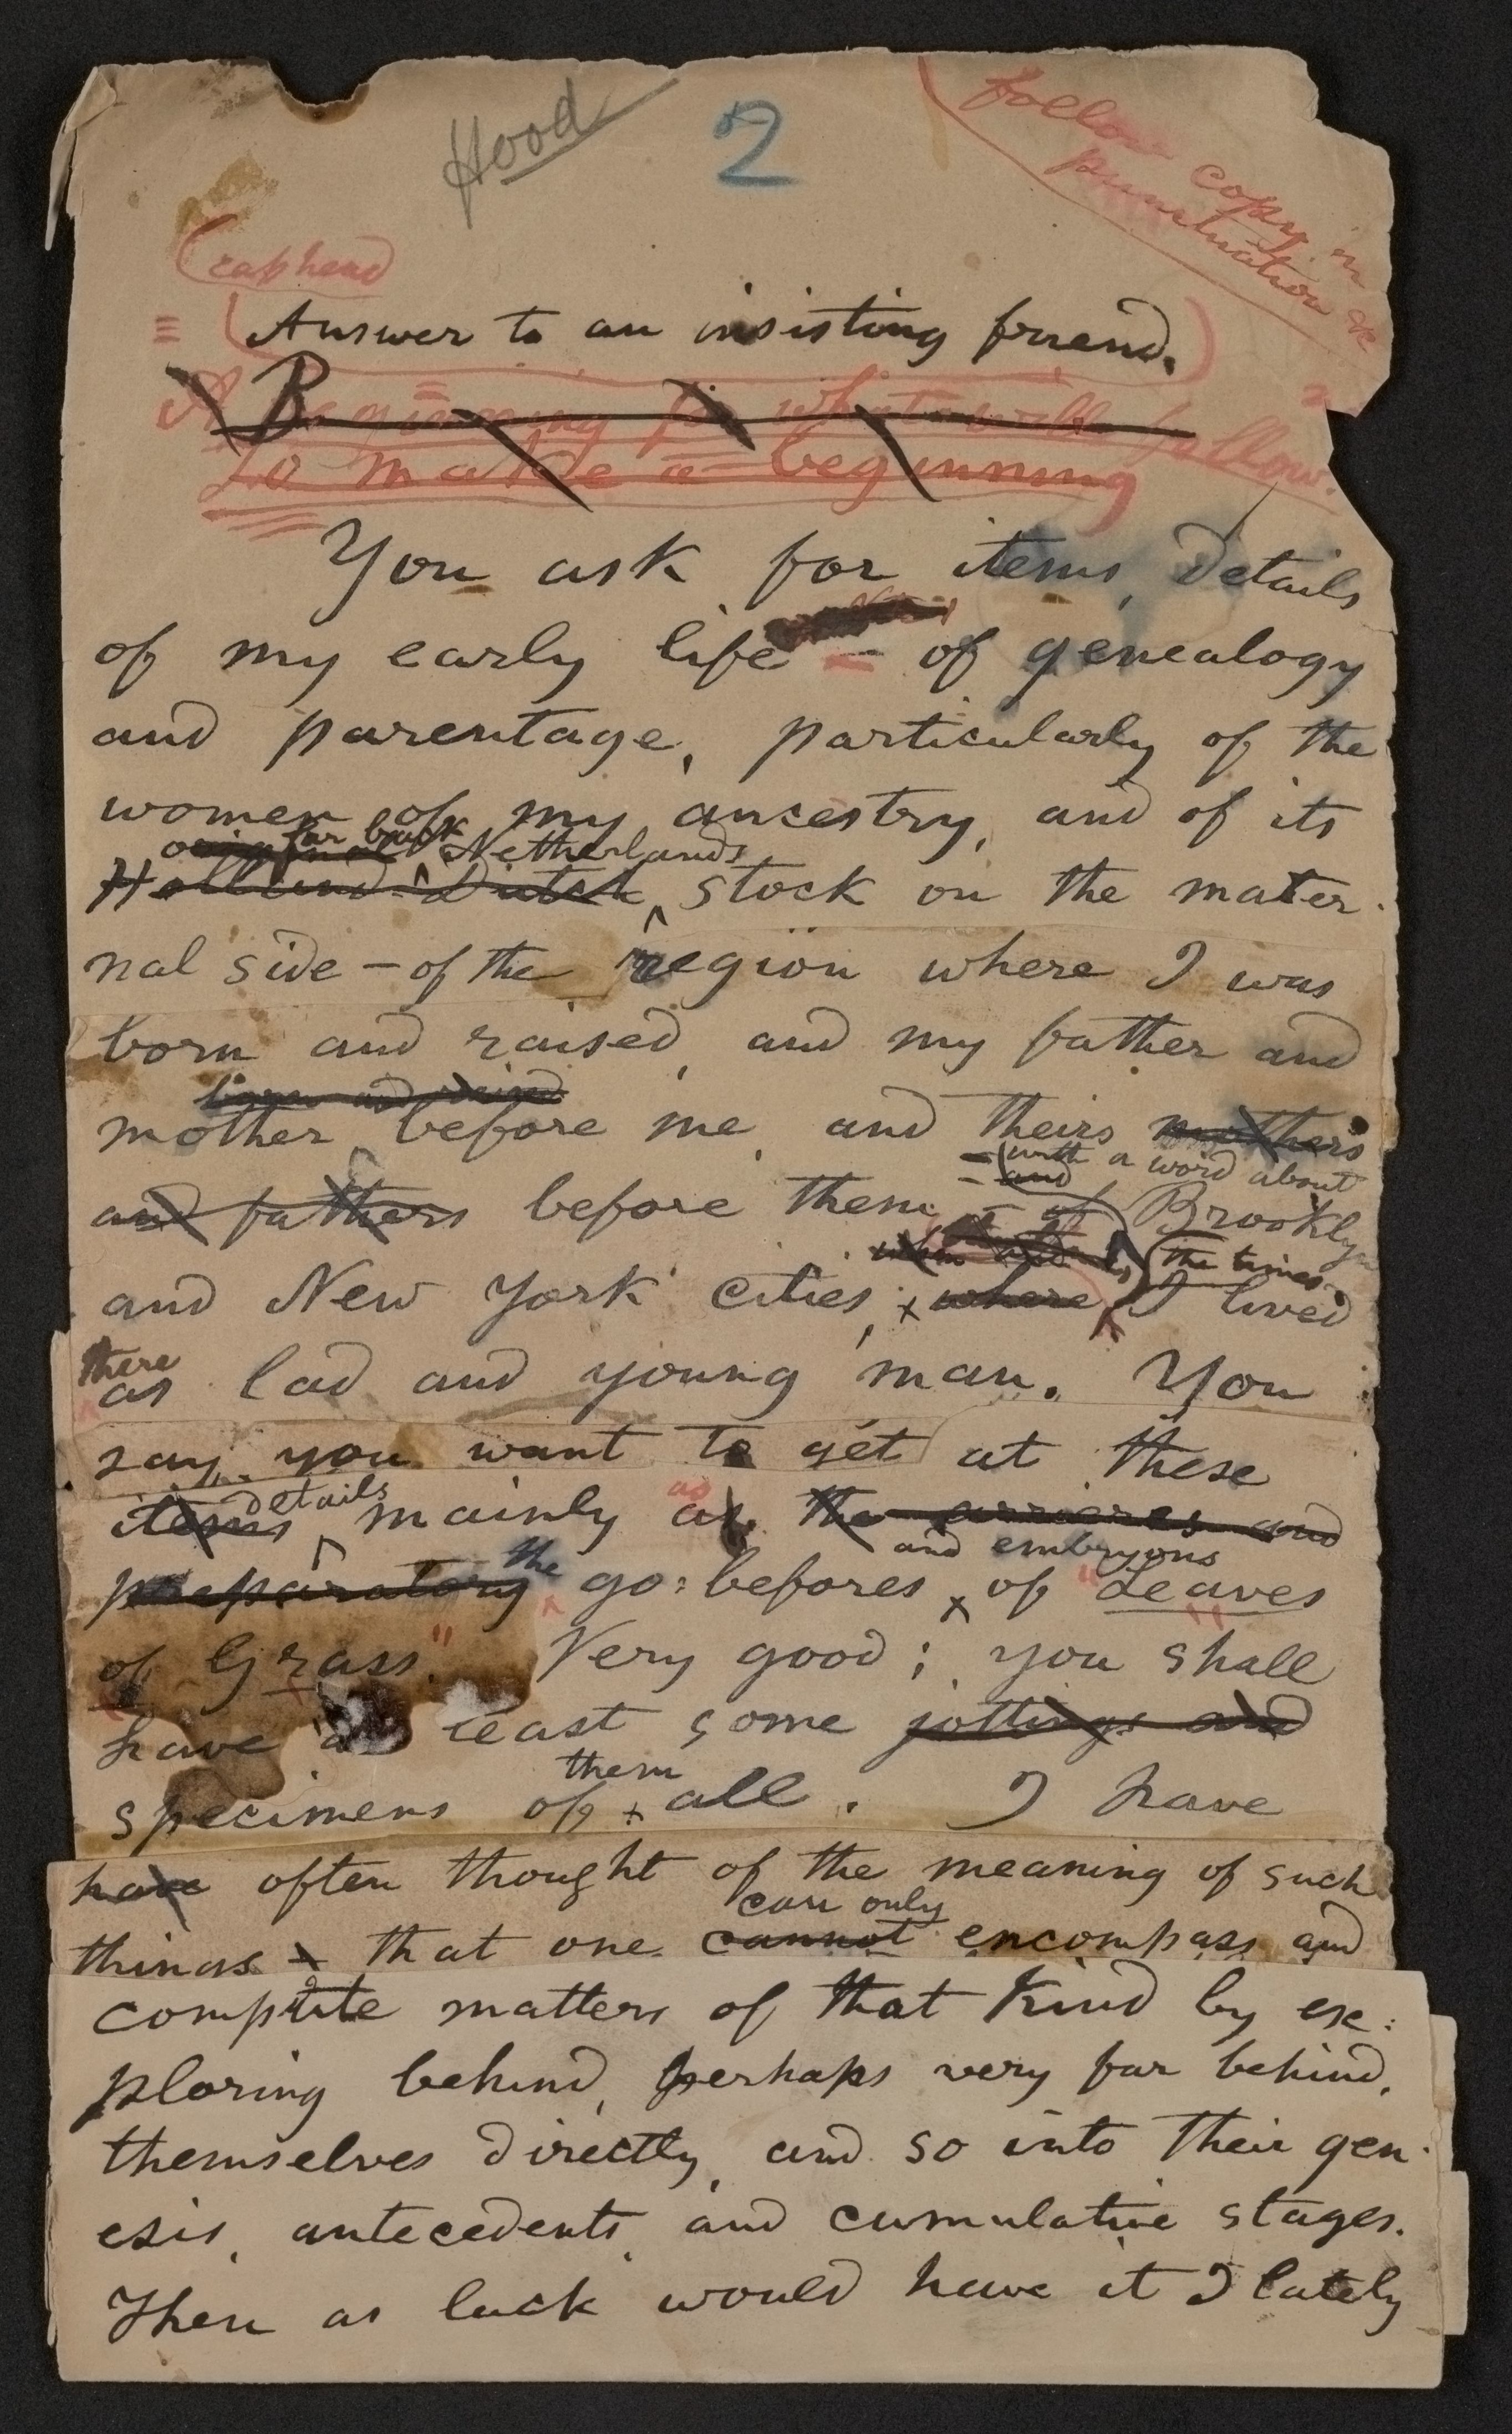 Hood
2
follow copy in
punctuation &c
cap head
Answer to an insisting friend.
A Beginning for what will follow.
To make a beginning
You ask for items, details
of my early life – of genealogy
and parentage, particularly of the
women of my ancestry, and of its
original far back Netherlands
Holland Dutch stock on the mater-
nal side – of the region where I was
born and raised, and my father and
born and raised
mother before me, and theirs mothers
– with a word about
and
and fathers before them – of Brooklyn
when the times
and New York cities, where I lived
there
as lad and young man. You
say you want to get at these
details as
items mainly as the arrieres and
and embryons
preparatory the go-befores of "Leaves
of Grass." Very good; you shall
have at least some jottings and
them
specimens of all. I have
have often thought of the meaning of such
can only
things – that one cannot encompass and
complete matters of that kind by ex-
ploring behind, perhaps very far behind,
themselves directly, and so into their gen-
esis, antecedents, and cumulative stages.
Then as luck would have it I lately